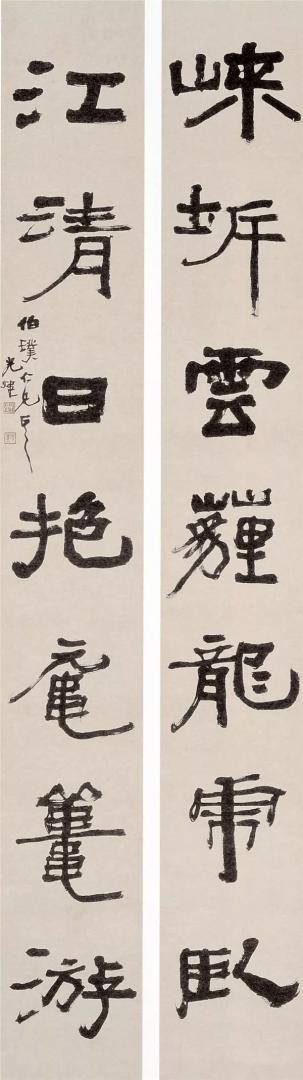 峽坼雲霾龍虎臥
江清日抱黿鼉游
伯璞仁兄正之
光煒